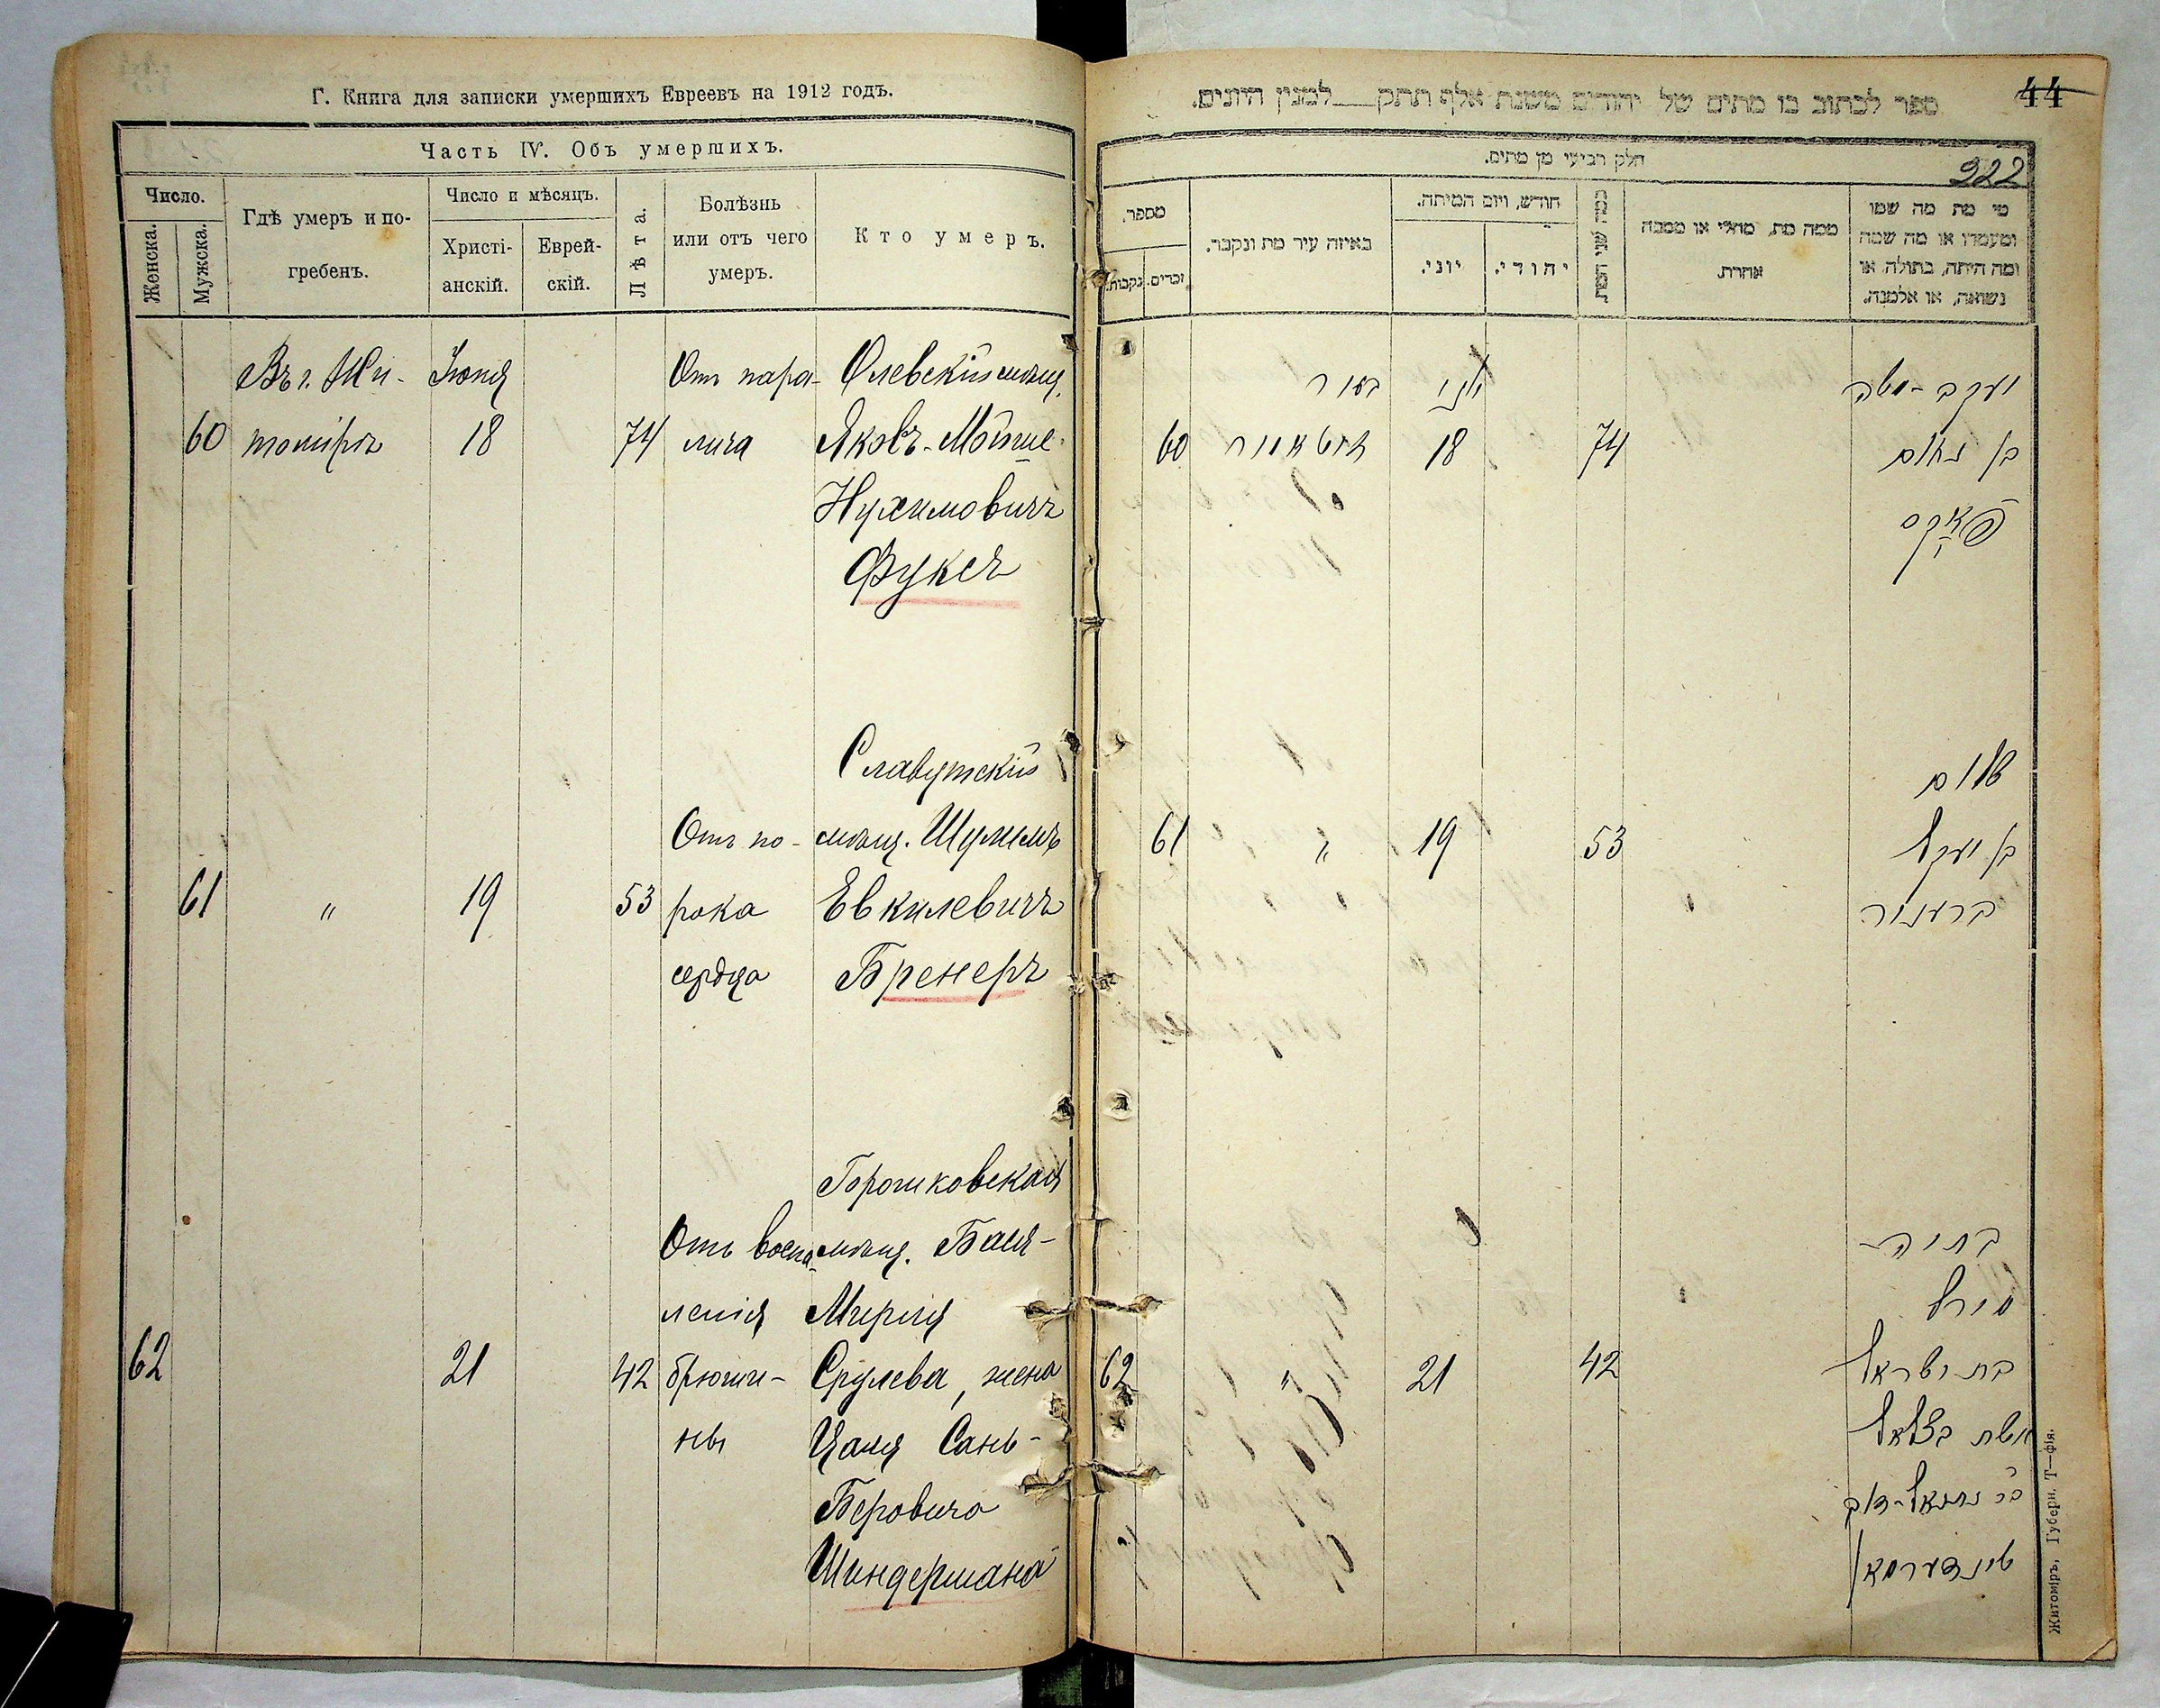 Г. Книга для записки умершихъ Евреевъ на 1912 годъ.
Часть IV. Объ умершихъ.
Число.
Женска.
Мужска.
Гдѣ умеръ и по-
гребенъ.
Число и мѣсяцъ.
Христі-
анскій.
Еврей-
скій.
Лѣта.
Болѣзнь
или отъ чего
умеръ.
Кто умеръ.
Въ г. Жи-
Іюня
Отъ пара-
Олевскій мѣщ.
60
томірѣ
18
74
лича
Яковъ-Мойше
Нухимовичъ
Фуксъ
Славутскій
Отъ по-
мѣщ. Шулимъ
61
"
19
53
рока
Евкилевичъ
сердца
Бренеръ
Горошковская
Отъ воспа-
мѣщ. Бася-
ленія
Мирля
62
21
42
брюши-
Срулева, жена
ны
Цаля Сань-
Беровича
Шиндермана
44
ספר לכתוב בו מתים של יהודים משנת אלף תתק למנין היונים.
חלק רביעי מן מתים.
922
מספר.
זכרים.
נקבות.
באיזה עיר מת ונקבר.
חודש, ויום המיתה.
יוני.
יהודי.
כמה שני המת
ממה מת, מחלי או מסבה
אחרת.
מי מת מה שמו
ומעמדו או מה שמה
ומה היתה, בתולה או
נשואה, או אלמנה.
יוני
יעקב-משה
60
זיטאמיר
18
74
בן נחום
פוקס
שלום
61
"
19
53
בן יעקל
ברענער
בתיה-
מירל
62
"
21
42
בת ישראל
אשת בצלאל
שינדערמאן
Житоміръ, Губерн. Т—фія.